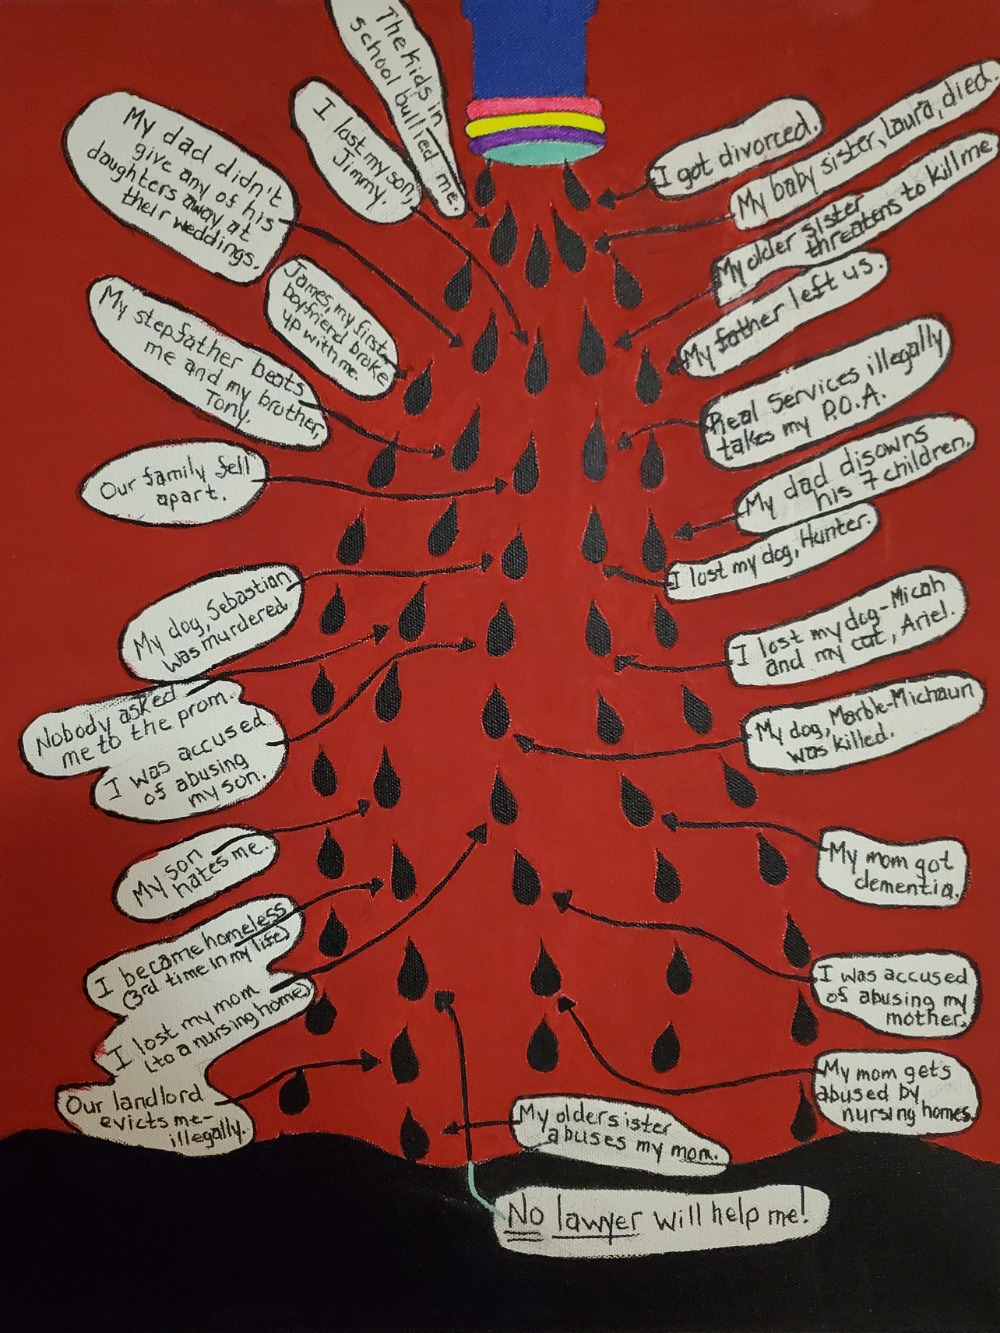 The kids in
school bullied
me.
I lost my son,
Jimmy.
My dad didn't
give any of his
daughters away at
their weddings.
James, my first
boyfriend broke
up with me.
My stepfather beats
me and my brother,
Tony.
Our family fell
apart.
My dog, Sebastian
was murdered.
Nobody asked
me to the prom.
I was accused
of abusing
my son.
My son
hates me.
I became homeless
(3rd time in my life)
I lost my mom
(to a nursing home)
Our landlord
evicts me-
illegally.
I got divorced.
My baby sister, Laura, died.
My older sister
threatens to kill me.
My father left us.
Real Services illegally
takes my P.O.A.
My dad disowns
his 7 children.
I lost my dog, Hunter.
I lost my dog-Micah
and my cat, Ariel.
My dog, Marble-Michaun
was killed.
My mom got
dementia.
I was accused
of abusing my
mother.
My mom gets
abused by
nursing homes.
My older sister
abuses my mom.
No lawyer will help me!